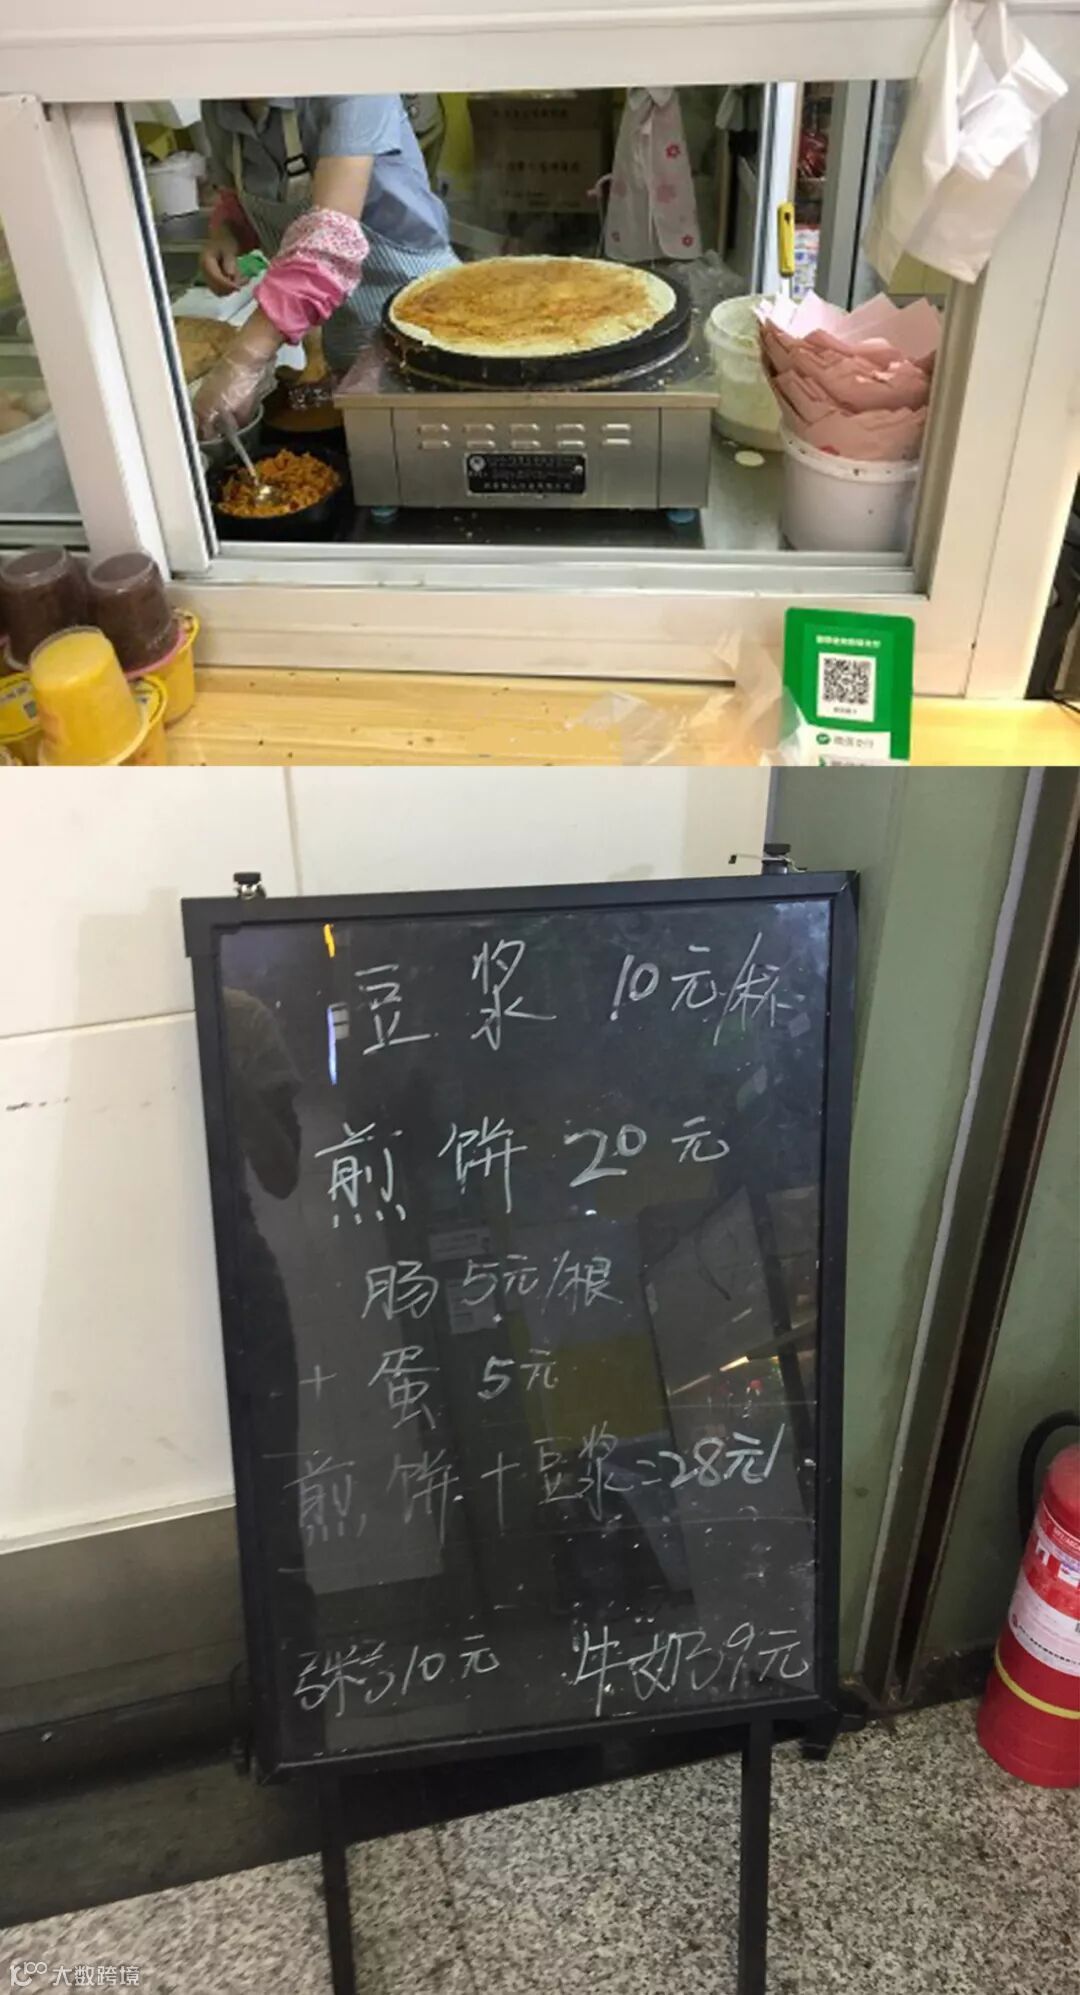 豆浆 10元/杯
煎饼 20元
肠 5元/根
+ 蛋 5元
煎饼+豆浆=28元/
粥10元 牛奶9元
大数跨境